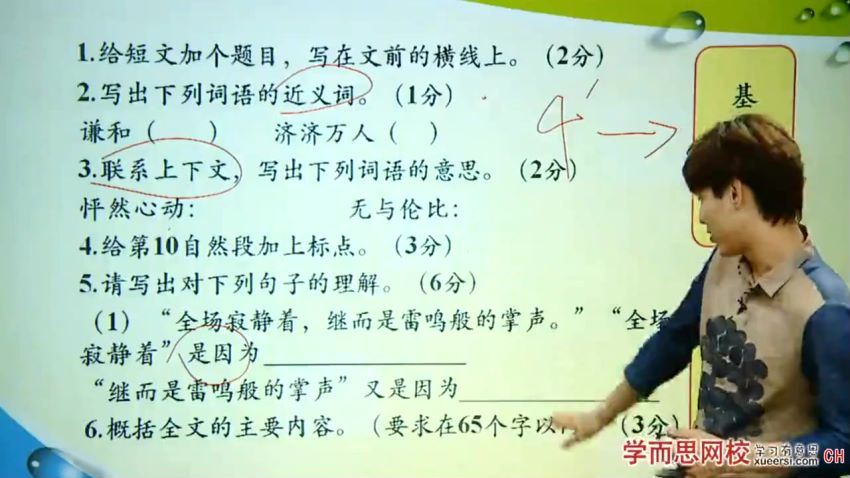 1.给短文加个题目，写在文前的横线上。（2分）
2.写出下列词语的近义词。（1分）
谦和（ ） 济济万人（ ）
3.联系上下文，写出下列词语的意思。（2分）
怦然心动： 无与伦比：
4.给第10自然段加上标点。（3分）
5.请写出对下列句子的理解。（6分）
（1）“全场寂静着，继而是雷鸣般的掌声。”“全场
寂静着”是因为
“继而是雷鸣般的掌声”又是因为
6.概括全文的主要内容。（要求在65个字以 （3分）
4'
基
学而思网校
学习有意思
xueersi.com
CH